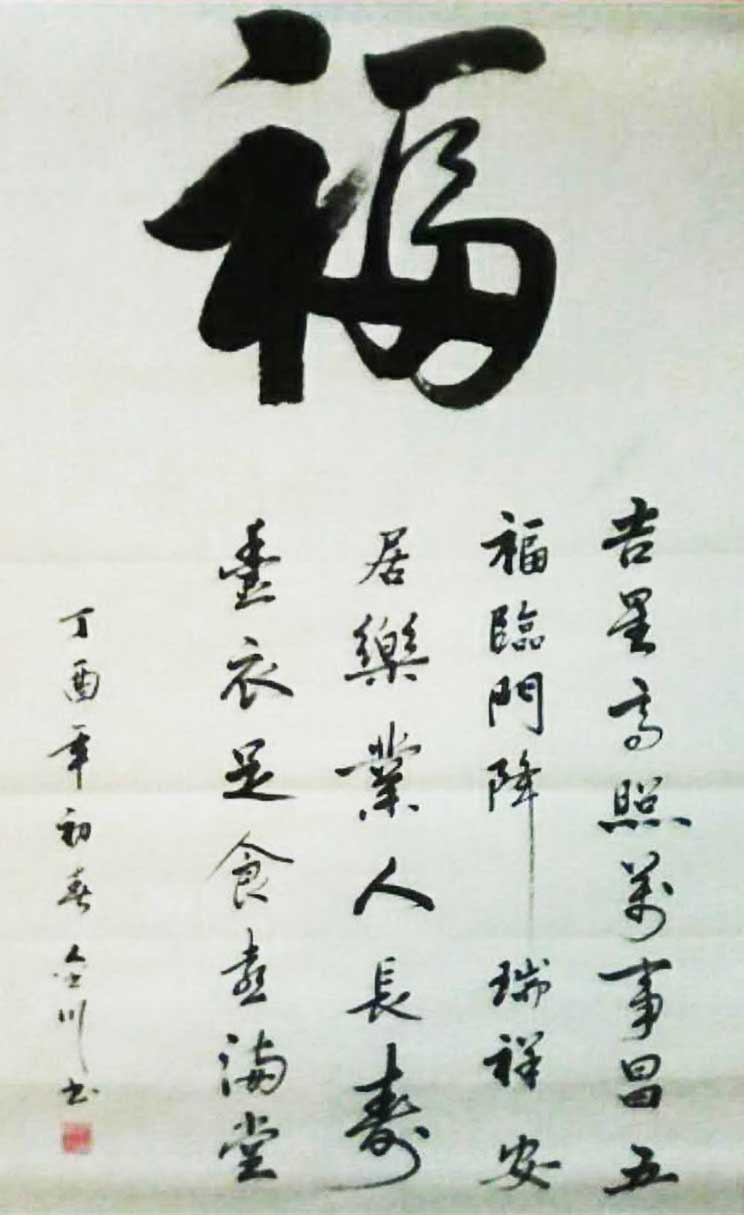 福
吉星高照萬事昌五
福臨門降瑞祥安
居樂業人長壽
豐衣足食喜滿堂
丁酉年初春金川书